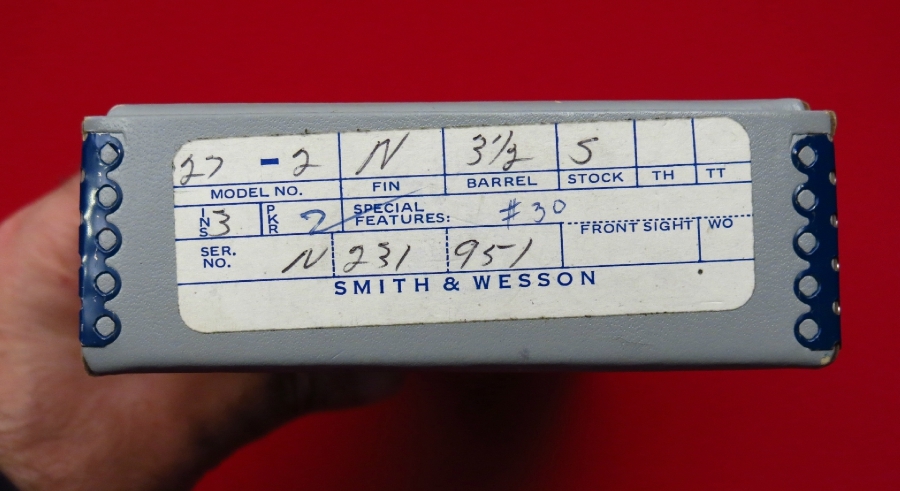 27 - 2 N 3 1/2 S
MODEL NO. FIN BARREL STOCK TH TT
INS 3 PKR 2 SPECIAL FEATURES: #30
FRONT SIGHT WO
SER. NO. N 231 951
SMITH & WESSON